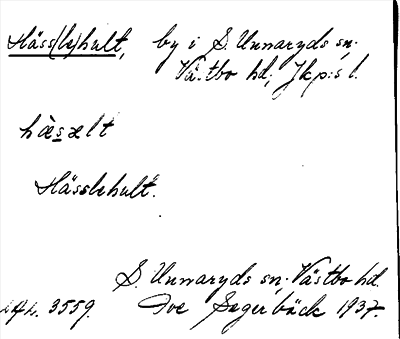 Häss(le)hult, by i S. Unnaryds sn.
Västbo hd; Jkp:s l.
hàsælt
Hässlehult.
S. Unnaryds sn. Västbo hd.
3559. Ove Segerbäck 1937.